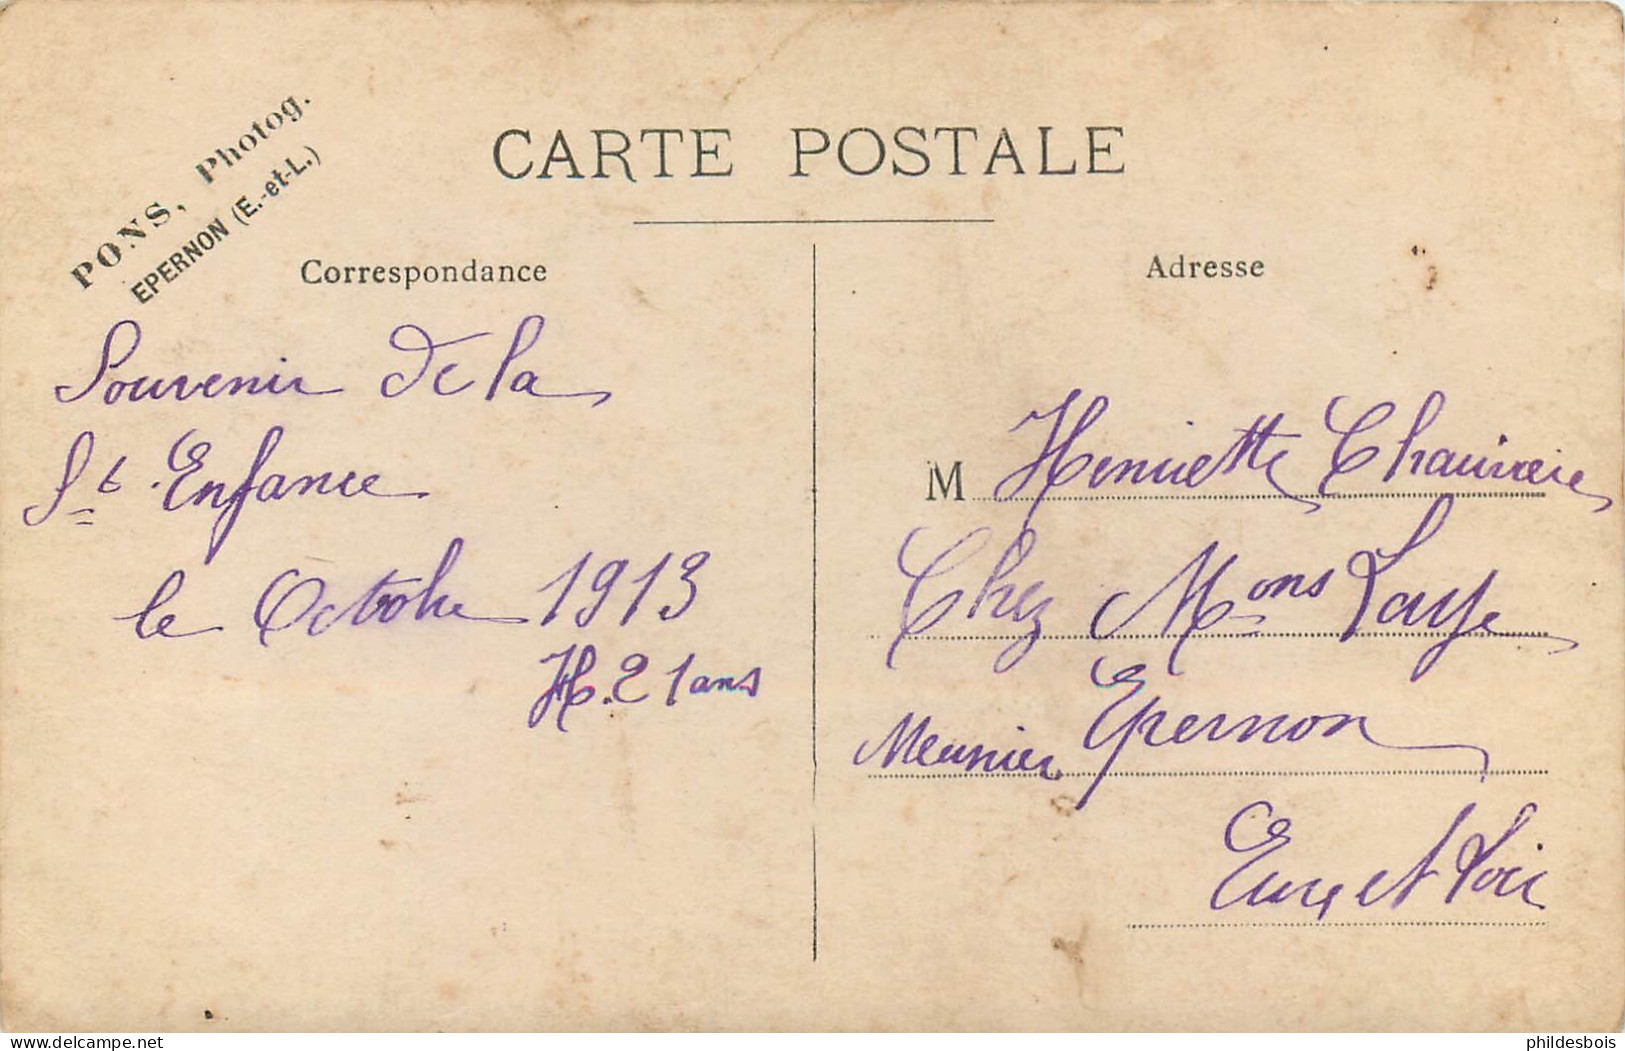 PONS, Photog.
EPERNON (E.-et-L.)
CARTE POSTALE
Correspondance
Adresse
Souvenir de la
St. Enfance
le Octobre 1913
H. 21 ans
M Henriette
Chez Mons Laye
Meunier Epernon
Eure et Loir
phildesbois